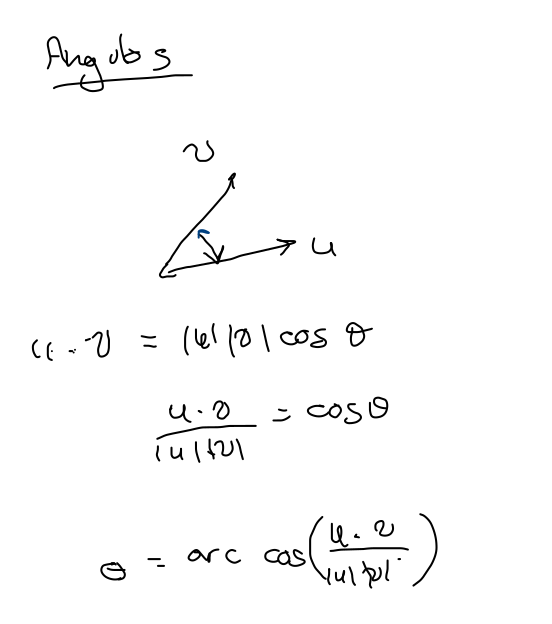 Angulos
v
u
u · v = |u| |v| cos θ
u · v / |u| |v| = cos θ
θ = arc cos ( u · v / |u| |v| )